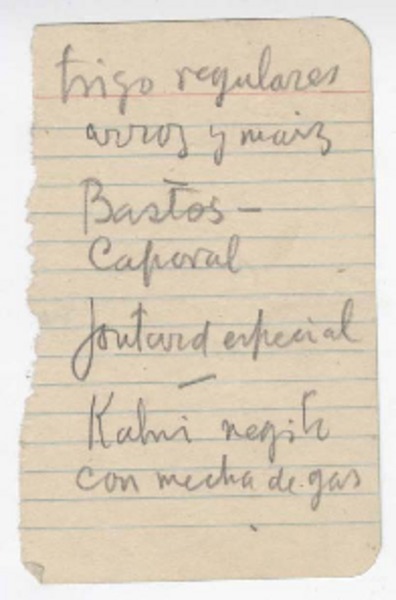 trigo regulares
arroz y maiz
Bastos —
Caporal
Joutard especial
—
Kalmi negrito
con mecha de gas